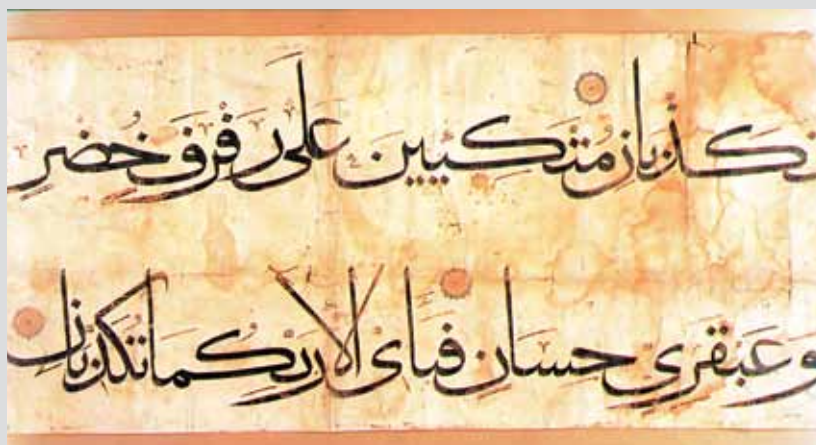 تكذبان متكيين على رفرف خضر
وعبقري حسان فبأي الا ربكما تكذبان